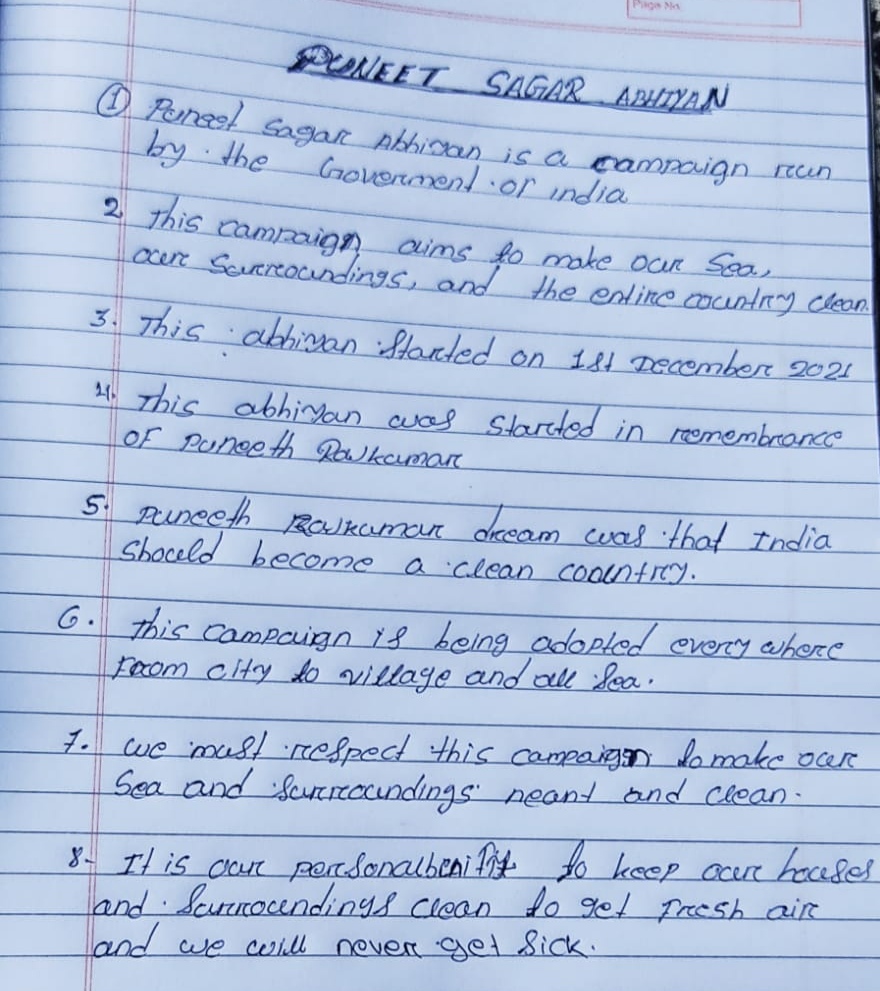 Page No.
PUNEET SAGAR ABHIYAN
① Puneet Sagar Abhiyan is a campaign run
by the Goverment or india
2 This campaign aims to make our Sea,
our Surroundings, and the entire country clean.
3. This abhiyan Started on 1st December 2021
4. This abhiyan was Started in remembrance
OF Puneeth Rajkumar
5. Puneeth Rajkumar dream was that India
Should become a clean coountry.
6. This campaign is being adopted every where
From city to village and all Sea.
7. We must respect this campaign to make our
Sea and Surroundings neant and clean.
8- It is our personalbenifit to keep our houses
and Surroundings clean to get Fresh air
and we will never get Sick.